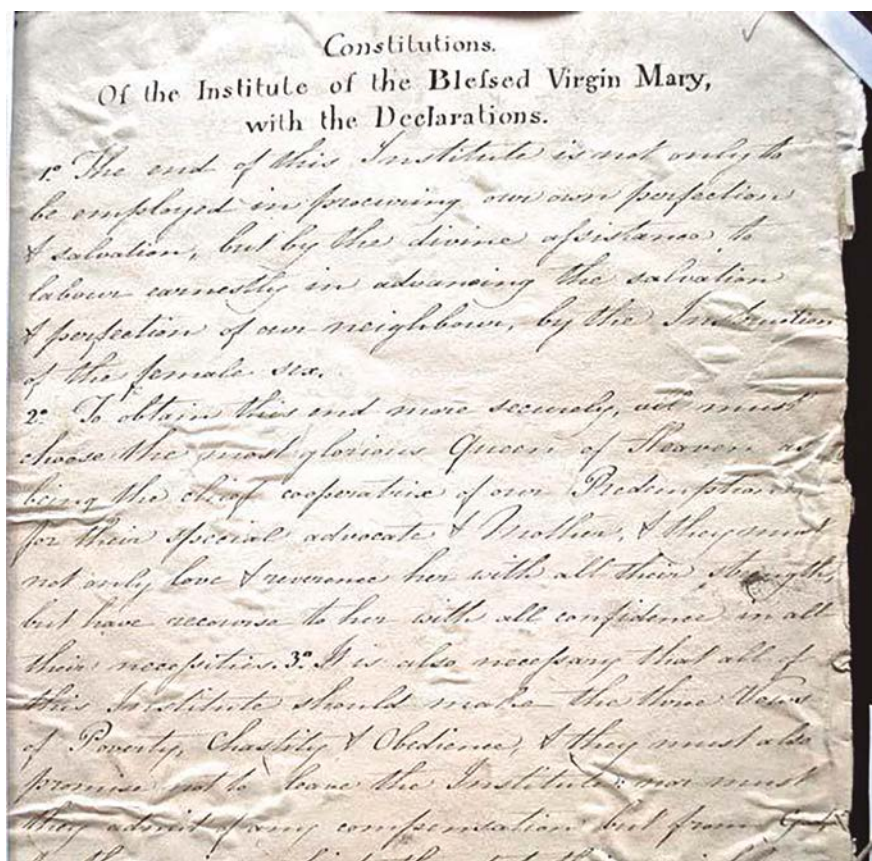 Constitutions.
Of the Institute of the Bleſsed Virgin Mary,
with the Declarations.
1º The end of this Institute is not only to
be employed in procuring our own perfection
& salvation, but by the divine aſsistance to
labour earnestly in advancing the salvation
& perfection of our neighbour, by the Instruction
of the female sex.
2º To obtain this end more securely, all must
choose the most glorious Queen of Heaven as
being the chief cooperatrix of our Redemption
for their special advocate & Mother, & they must
not only love & reverence her with all their strength,
but have recourse to her with all confidence in all
their neceſsities. 3º It is also neceſsary that all of
this Institute should make the three Vows
of Poverty, Chastity & Obedience, & they must also
promise not to leave the Institute: nor must
they admit of any compensation but from God